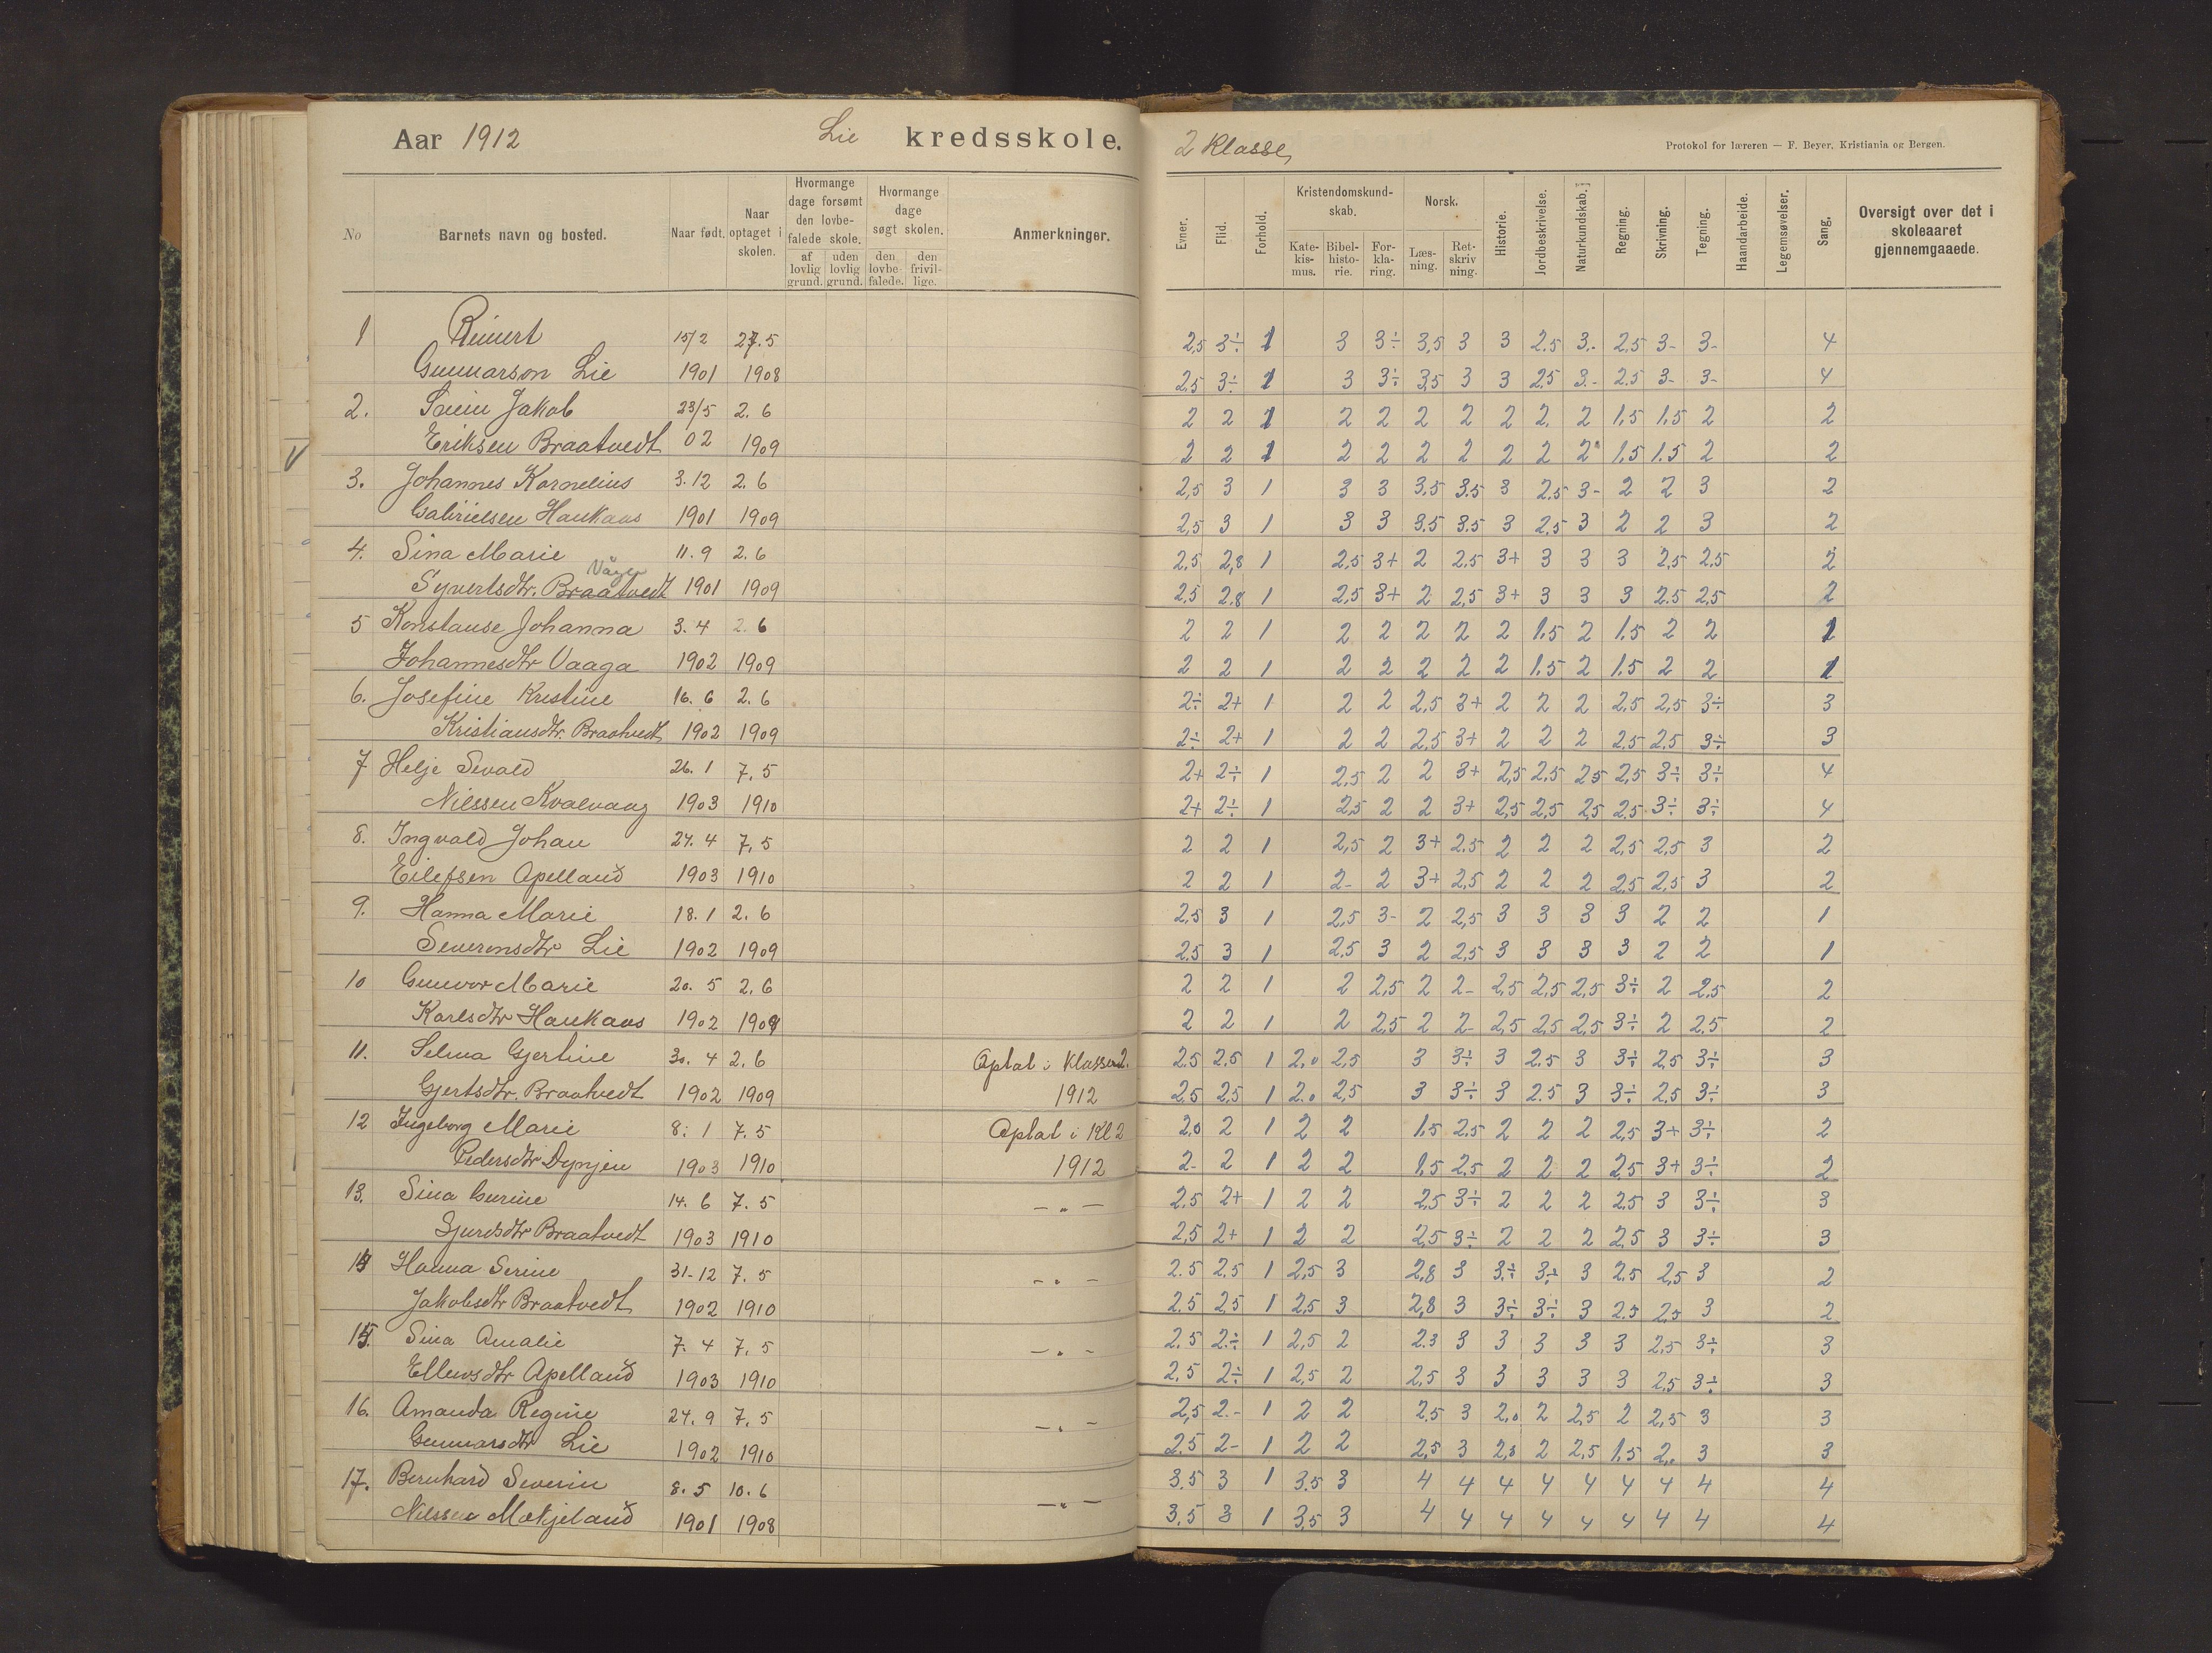 Aar 1912 Lie kredsskole.
2 Klasse,
Protokol for læreren — F. Beyer, Kristiania og Bergen.
No
Barnets navn og bosted.
Naar født.
Naar optaget i skolen.
Hvormange dage forsømt den lovbefalede skole.
af lovlig grund.
uden lovlig grund.
Hvormange dage søgt skolen.
den lovbefalede.
den frivillige.
Anmerkninger.
Evner.
Flid.
Forhold.
Kristendomskundskab.
Katekismus.
Bibelhistorie.
Forklaring.
Norsk.
Læsning.
Retskrivning.
Historie.
Jordbeskrivelse.
Naturkundskab.
Regning.
Skrivning.
Tegning.
Haandarbeide.
Legemsøvelser.
Sang.
Oversigt over det i skoleaaret gjennemgaaede.
1 Reinert 15/2 27.5 2,5 3÷ 1 3 3÷ 3,5 3 3 2.5 3.- 2,5 3- 3- 4
Gunnarson Lie 1901 1908 2,5 3÷ 1 3 3÷ 3,5 3 3 2,5 3.- 2.5 3- 3- 4
2. Jakob 23/5 2.6 2 2 1 2 2 2 2 2 2. 2 1,5 1,5 2 2
Eriksen Braatvedt 02 1909 2 2 1 2 2 2 2 2 2 2 1,5 1.5 2 2
3. Johannes Kornelius 3.12 2.6 2,5 3 1 3 3 3,5 3.5 3 2,5 3- 2 2 3 2
Gabrielsen Haukaas 1901 1909 2,5 3 1 3 3 3.5 3.5 3 2.5 3 2 2 3 2
4. Sina Marie 11.9 2.6 2,5 2,8 1 2,5 3+ 2 2.5 3+ 3 3 3 2,5 2,5 2
Syvertsdtr. Braatvedt Vågen 1901 1909 2,5 2.8 1 2,5 3+ 2 2,5 3+ 3 3 3 2.5 2,5 2
5 Konstanse Johanna 3.4 2.6 2 2 1 2 2 2 2 2 1,5 2 1.5 2 2 1
Johannesdtr Vaaga 1902 1909 2 2 1 2 2 2 2 2 1.5 2 1.5 2 2 1
6. Josefine Kristine 16.6 2.6 2÷ 2+ 1 2 2 2,5 3+ 2 2 2 2,5 2,5 3÷ 3
Kristiansdtr. Braatvedt 1902 1909 2÷ 2+ 1 2 2 2,5 3+ 2 2 2 2,5 2.5 3÷ 3
7 Helje Sevald 26.1 7.5 2+ 2÷ 1 2,5 2 2 3+ 2,5 2,5 2,5 2,5 3÷ 3÷ 4
Nilssen Kvalvaag 1903 1910 2+ 2÷ 1 2,5 2 2 3+ 2,5 2,5 2,5 2.5 3÷ 3÷ 4
8. Ingvald Johan 24.4 7.5 2 2 1 2,5 2 3+ 2.5 2 2 2 2,5 2.5 3 2
Eilefsen Apelland 1903 1910 2 2 1 2- 2 3+ 2,5 2 2 2 2,5 2,5 3 2
9. Hanna Marie 18.1 2.6 2,5 3 1 2,5 3- 2 2,5 3 3 3 3 2 2 1
Severinsdtr Lie 1902 1909 2.5 3 1 2.5 3 2 2,5 3 3 3 3 2 2 1
10 Gunvor Marie 20.5 2.6 2 2 1 2 2,5 2 2- 2,5 2,5 2,5 3÷ 2 2,5 2
Karlsdtr Haukaas 1902 1909 2 2 1 2 2,5 2 2- 2,5 2,5 2,5 3÷ 2 2.5 2
11. Selma Gjertine 30.4 2.6 Optat i klassen 2. 2.5 2.5 1 2.0 2,5 3 3÷ 3 2.5 3 3÷ 2,5 3÷ 3
Gjertsdtr. Braatvedt 1902 1909 1912 2,5 2,5 1 2.0 2,5 3 3÷ 3 2.5 3 3÷ 2,5 3÷ 3
12 Ingeborg Marie 8.1 7.5 Optat i Kl 2 2.0 2 1 2 2 1.5 2.5 2 2 2 2,5 3+ 3÷ 2
Pedersdtr Dynjen 1903 1910 1912 2- 2 1 2 2 1,5 2,5 2 2 2 2,5 3+ 3÷ 2
13. Sina Gurine 14.6 7.5 — „ — 2,5 2+ 1 2 2 2,5 3÷ 2 2 2 2,5 3 3÷ 3
Sjursdtr Braatvedt 1903 1910 2,5 2+ 1 2 2 2,5 3÷ 2 2 2 2,5 3 3÷ 3
14 Hanna Serine 31-12 7.5 — „ — 2.5 2,5 1 2,5 3 2,8 3 3÷ 3÷ 3 2.5 2,5 3 2
Jakobsdtr Braatvedt 1902 1910 2.5 2,5 1 2,5 3 2,8 3 3÷ 3÷ 3 2.5 2,5 3 2
15. Sina Amalie 7.4 7.5 — „ — 2.5 2.÷ 1 2,5 2 2.3 3 3 3 3 3 2,5 3÷ 3
Apelland 1903 1910 2,5 2÷ 1 2,5 2 2,5 3 3 3 3 3 2,5 3÷ 3
16. Amanda Regine 24.9 7.5 — „ — 2,5 2.- 1 2 2 2.5 3 2,0 2 2,5 2 2,5 3 3
Gunnarsdtr Lie 1902 1910 2.5 2- 1 2 2 2,5 3 2,0 2 2,5 1,5 2.. 3 3
17. Bernhard Severin 8.5 10.6 — „ — 3.5 3 1 3.5 3 4 4 4 4 4 4 4 4 4
Nilssen Mokjeland 1901 1908 3,5 3 1 3,5 3 4 4 4 4 4 4 4 4 4